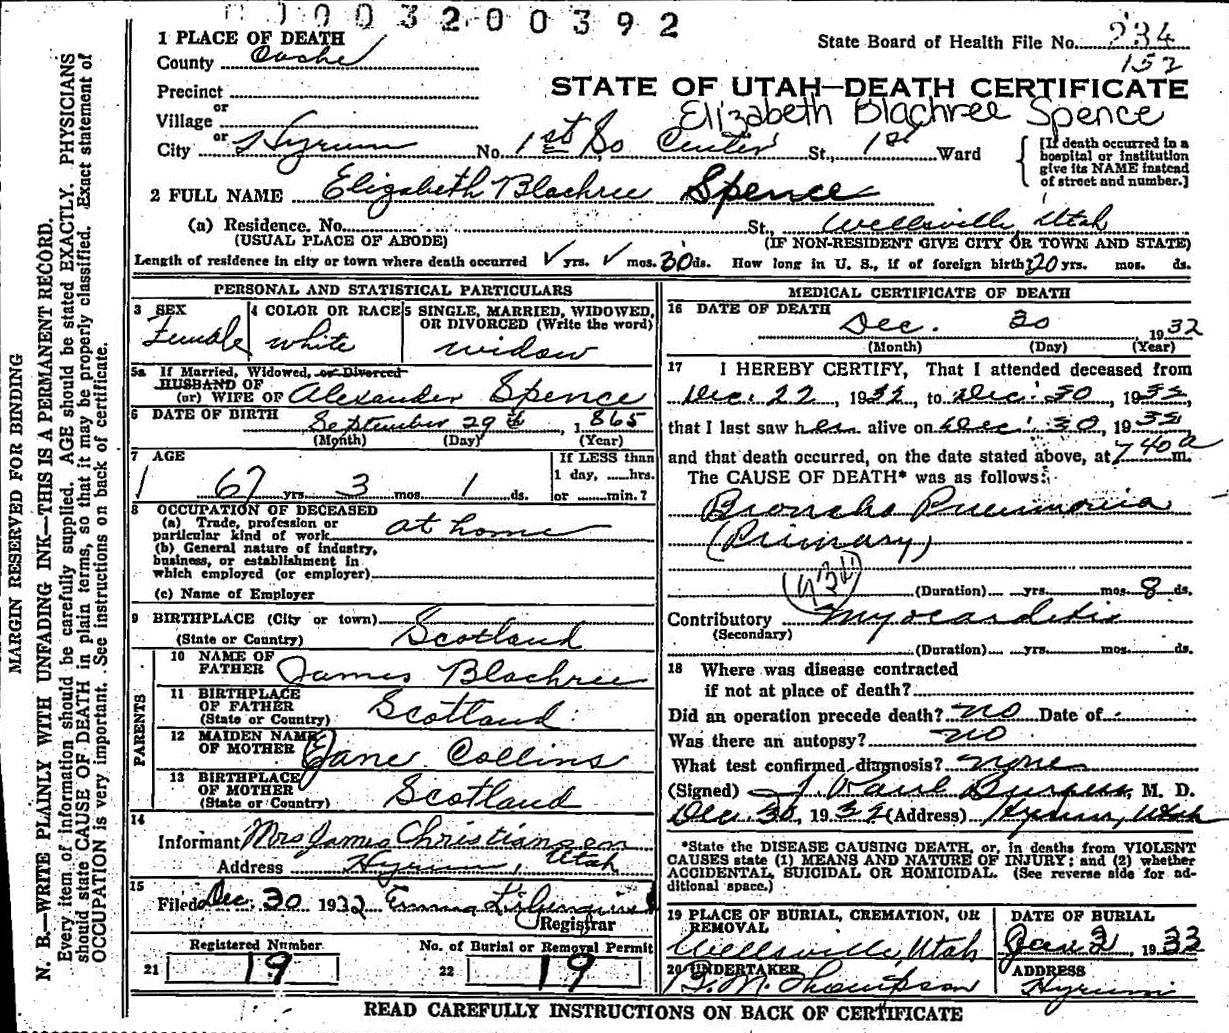 00003200392
1 PLACE OF DEATH
State Board of Health File No. 234
152
County Cache
Precinct
STATE OF UTAH—DEATH CERTIFICATE
or
Village
Elizabeth Blachree Spence
or
City Hyrum No. 1st So Center St., 1st Ward
[If death occurred in a hospital or institution give its NAME instead of street and number.]
2 FULL NAME Elizabeth Blachree Spence
(a) Residence. No. St., Wellsville, Utah
(USUAL PLACE OF ABODE) (IF NON-RESIDENT GIVE CITY OR TOWN AND STATE)
Length of residence in city or town where death occurred ✓ yrs. ✓ mos. 30 ds. How long in U. S., if of foreign birth? 20 yrs. mos. ds.
PERSONAL AND STATISTICAL PARTICULARS
3 SEX
Female
4 COLOR OR RACE
white
5 SINGLE, MARRIED, WIDOWED, OR DIVORCED (Write the word)
widow
5a If Married, Widowed, or Divorced
HUSBAND OF
(or) WIFE OF Alexander Spence
6 DATE OF BIRTH September 29th, 1865
(Month) (Day) (Year)
7 AGE
67 yrs. 3 mos. 1 ds.
If LESS than
1 day, ......hrs.
or ......min.?
8 OCCUPATION OF DECEASED
(a) Trade, profession or
particular kind of work at home
(b) General nature of industry,
business, or establishment in
which employed (or employer)
(c) Name of Employer
9 BIRTHPLACE (City or town)
(State or Country) Scotland
PARENTS
10 NAME OF
FATHER James Blachree
11 BIRTHPLACE
OF FATHER
(State or Country) Scotland
12 MAIDEN NAME
OF MOTHER Jane Collins
13 BIRTHPLACE
OF MOTHER
(State or Country) Scotland
14
Informant Mrs James Christiansen
Address Hyrum, Utah
15
Filed Dec. 30 1932 Emma
Registrar
Registered Number
21 19
No. of Burial or Removal Permit
22 19
MEDICAL CERTIFICATE OF DEATH
16 DATE OF DEATH
Dec. 30 1932
(Month) (Day) (Year)
17 I HEREBY CERTIFY, That I attended deceased from
Dec. 22, 1932, to Dec. 30, 1932,
that I last saw her alive on Dec. 30, 1932
and that death occurred, on the date stated above, at 7 40 a m.
The CAUSE OF DEATH* was as follows:
Broncho Pneumonia
(Primary)
(Duration) yrs. mos. 8 ds.
Contributory Myocarditis
(Secondary)
(Duration) yrs. mos. ds.
18 Where was disease contracted
if not at place of death?
Did an operation precede death? no Date of
Was there an autopsy? no
What test confirmed diagnosis?
(Signed) J Paul Burgess, M. D.
Dec. 30, 1932 (Address) Hyrum, Utah
*State the DISEASE CAUSING DEATH, or, in deaths from VIOLENT
CAUSES state (1) MEANS AND NATURE OF INJURY; and (2) whether
ACCIDENTAL, SUICIDAL OR HOMICIDAL. (See reverse side for ad-
ditional space.)
19 PLACE OF BURIAL, CREMATION, OR
REMOVAL
Wellsville, Utah
DATE OF BURIAL
Jan 2, 1933
20 UNDERTAKER
B. M. Thompson
ADDRESS
Hyrum
READ CAREFULLY INSTRUCTIONS ON BACK OF CERTIFICATE
MARGIN RESERVED FOR BINDING
N. B.—WRITE PLAINLY WITH UNFADING INK—THIS IS A PERMANENT RECORD.
Every item of information should be carefully supplied. AGE should be stated EXACTLY. PHYSICIANS
should state CAUSE OF DEATH in plain terms, so that it may be properly classified. Exact statement of
OCCUPATION is very important. See instructions on back of certificate.